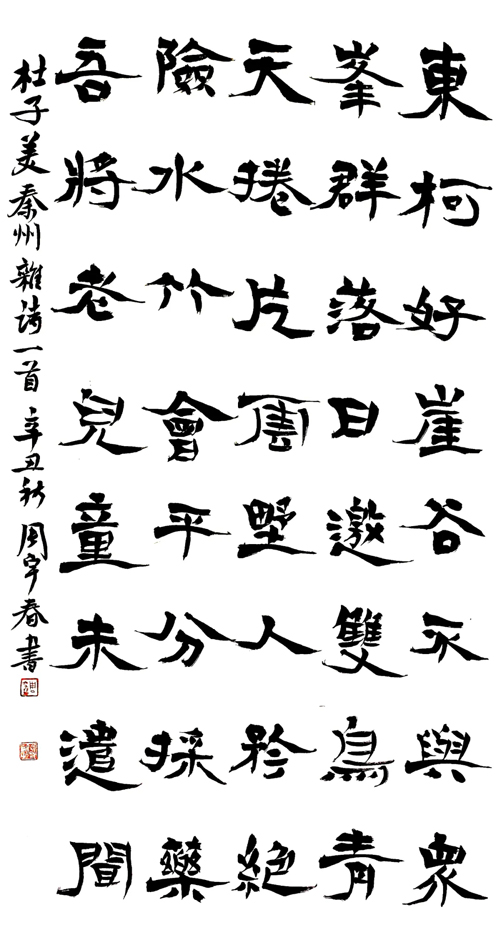 東柯好崖谷不與眾
峯群落日邀雙鳥青
天捲片雲野人矜絕
險水竹會平分採藥
吾將老兒童未遣聞
杜子美秦州雜詩一首辛丑秋周宇春書